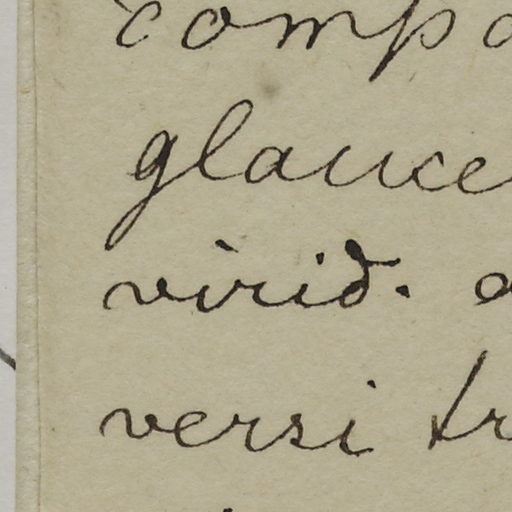 compa
glauce
virid. a
versi tr